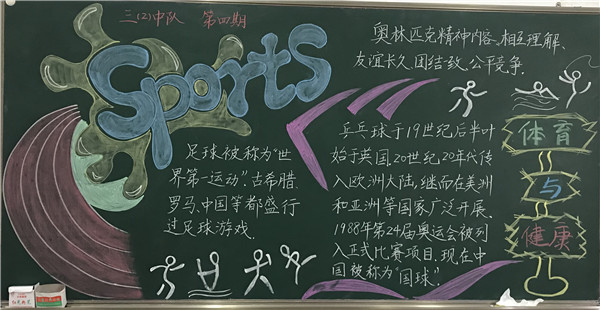 三(2)中队 第四期
Sports
奥林匹克精神内容、相互理解、
友谊长久、团结一致、公平竞争.
足球被称为"世
界第一运动".古希腊.
罗马、中国等都盛行
过足球游戏.
乒乓球于19世纪后半叶
始于英国.20世纪20年代传
入欧洲大陆,继而在美洲
和亚洲等国家广泛开展.
1988年第24届奥运会被列
入正式比赛项目.现在中
国被称为"国球".
体育
与
健康